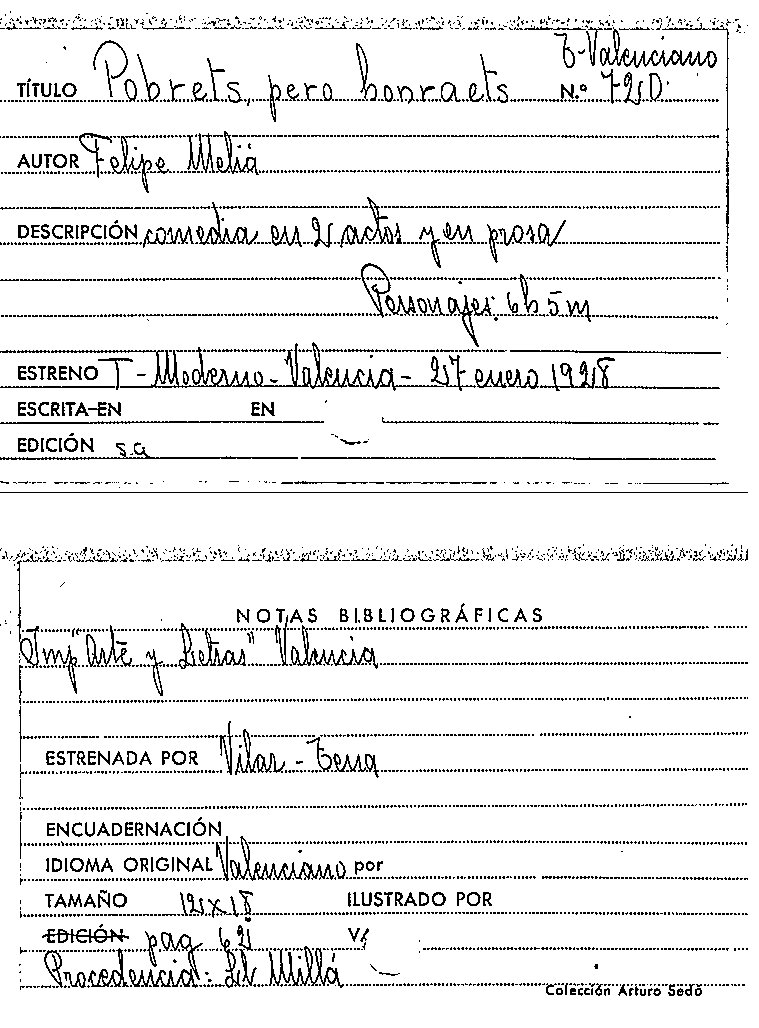 T-Valenciano
TÍTULO Pobrets, pero honraets N.º 720
AUTOR Felipe Meliá
DESCRIPCIÓN comedia en 2 actos y en prosa
Personajes: 6h 5m
ESTRENO T-Moderno-Valencia-27 enero 1928
ESCRITA EN EN
EDICIÓN s.a
NOTAS BIBLIOGRÁFICAS
Imp "Arte y Letras" Valencia
ESTRENADA POR Vilar-Tena
ENCUADERNACIÓN
IDIOMA ORIGINAL Valenciano por
TAMAÑO 12x18 ILUSTRADO POR
EDICIÓN pag 62
Procedencia: Ll Millá
Colección Arturo Sedó